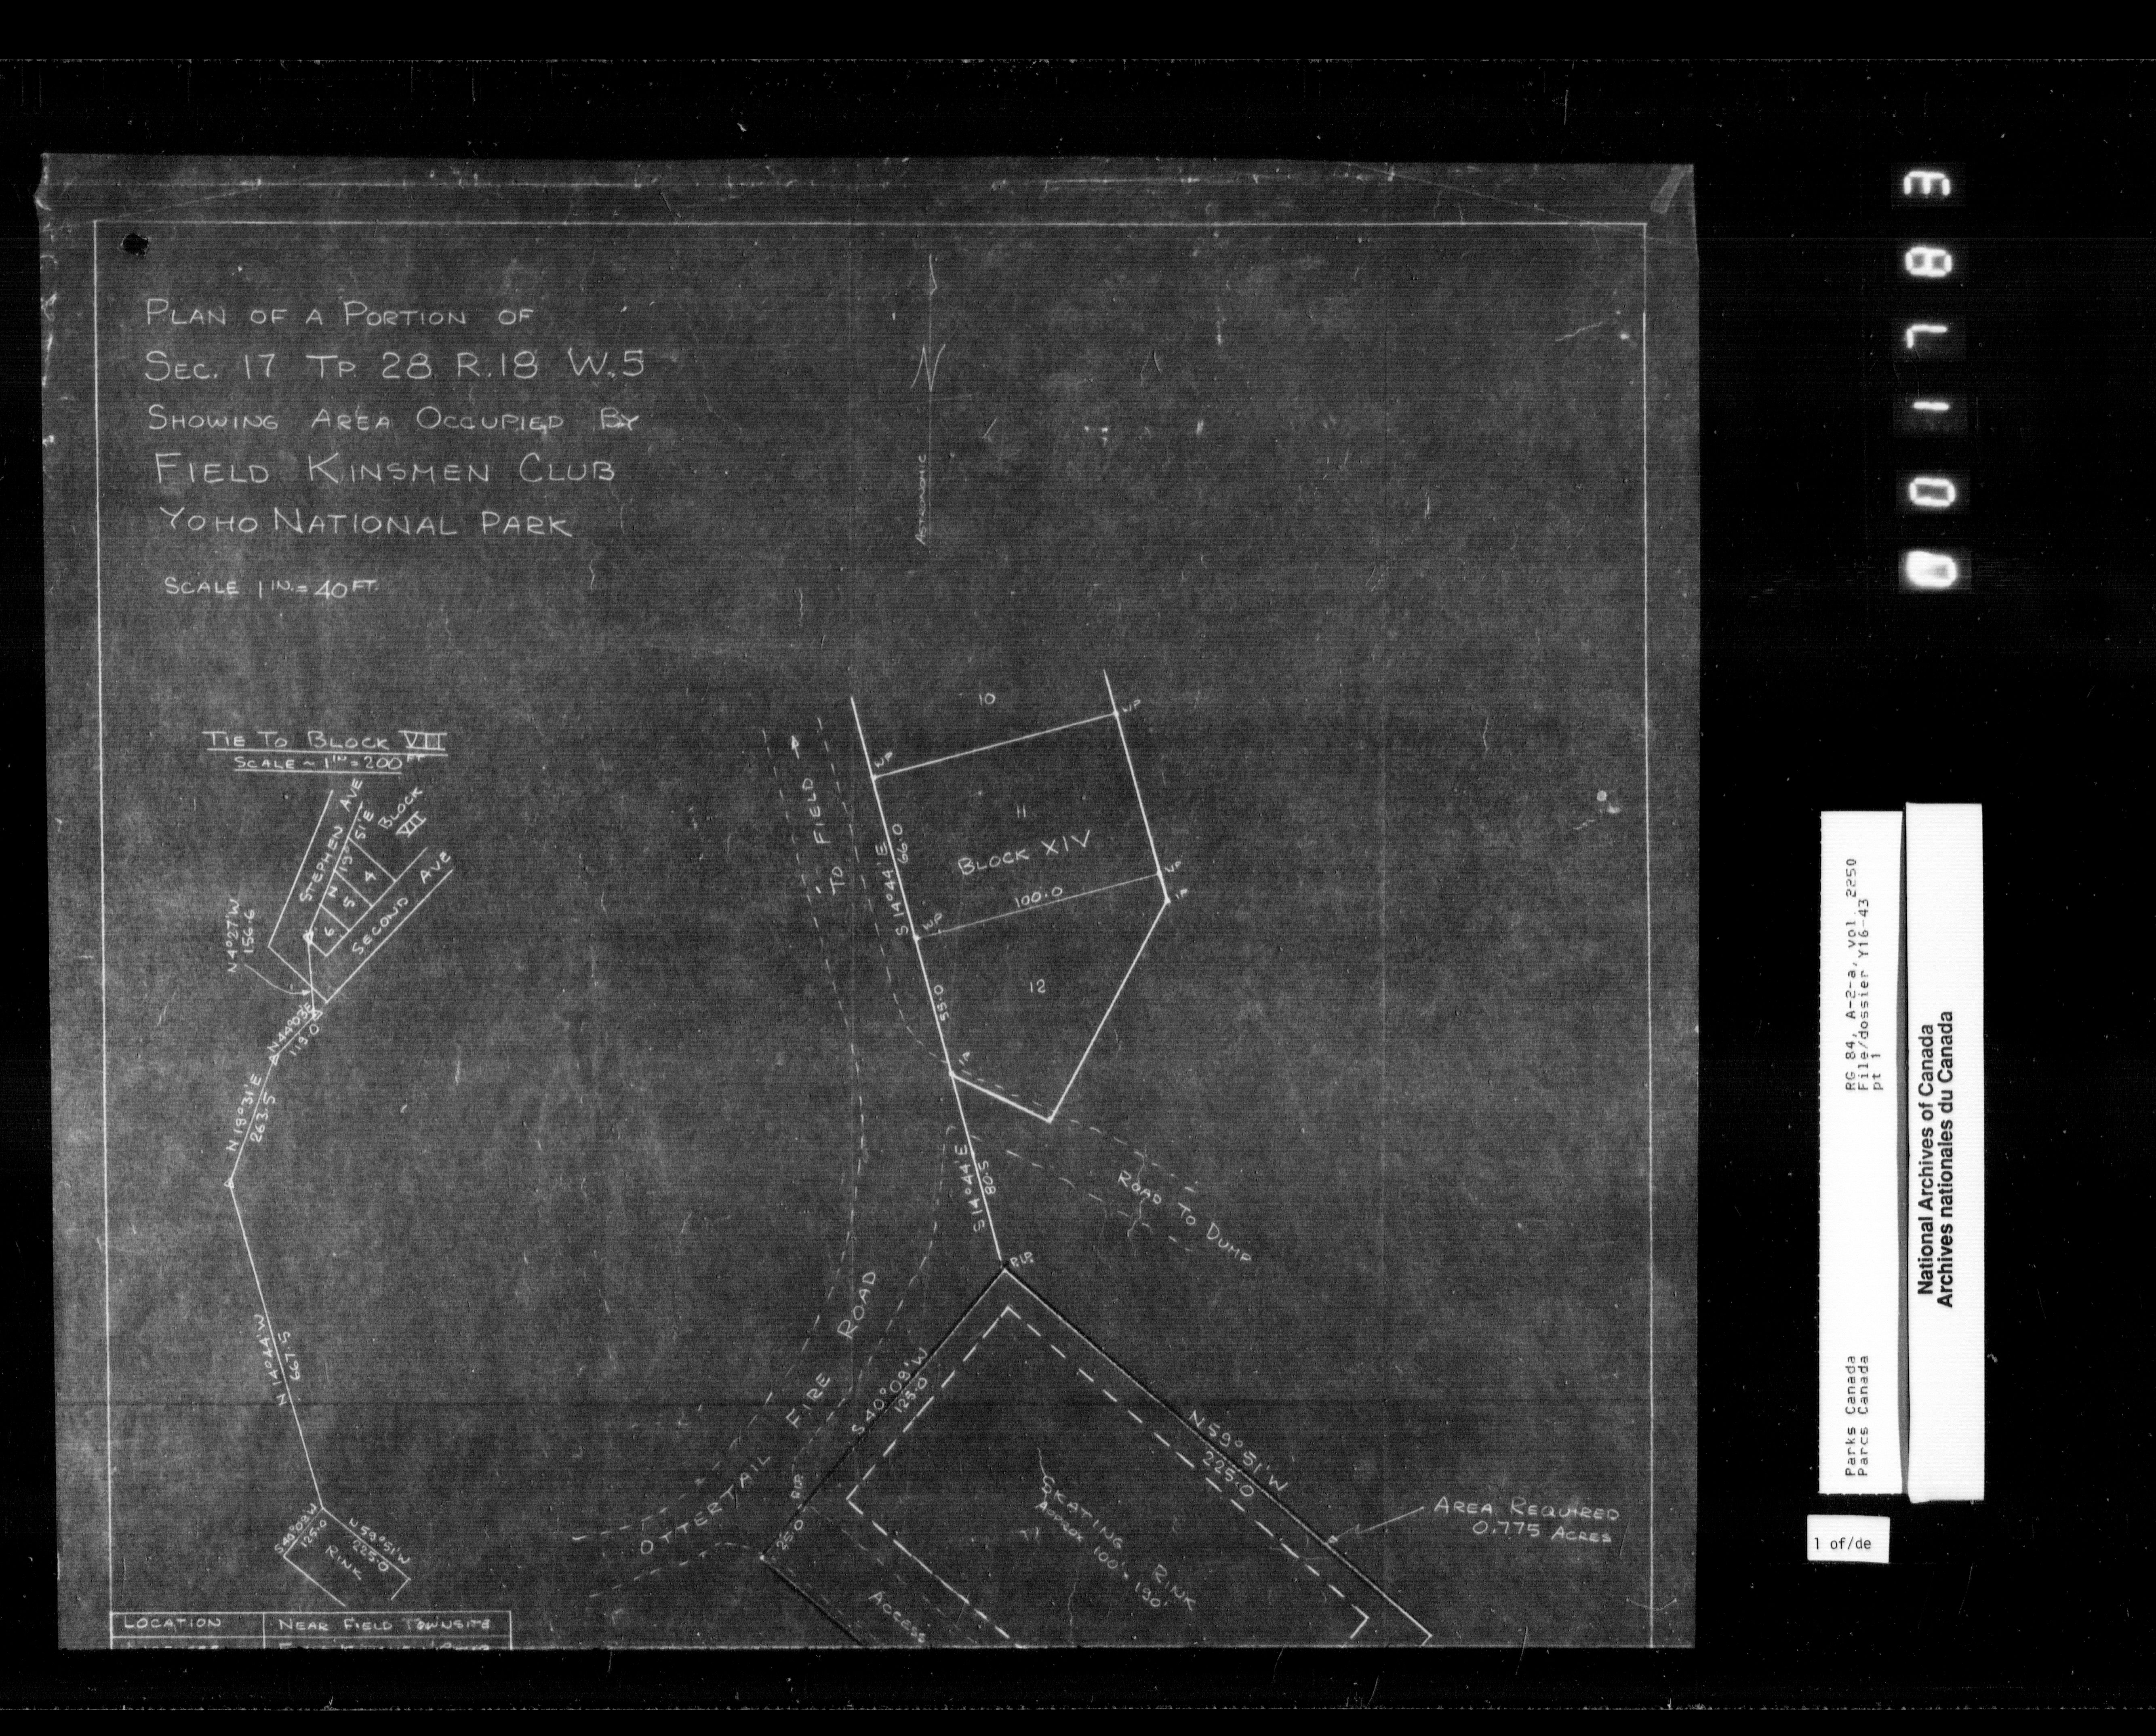 PLAN OF A PORTION OF
SEC. 17 TP. 28 R.18 W.5
SHOWING AREA OCCUPIED BY
FIELD KINSMEN CLUB
YOHO NATIONAL PARK
SCALE 1 IN. = 40 FT.
ASTRONOMIC
N
TIE TO BLOCK VII
SCALE ~ 1 IN = 200 FT
STEPHEN AVE
N 19°51'E
BLOCK
VII
4
5
6
SECOND AVE
N4°27'W
156.6
N44°03'E
119.0
N 19°31'E
263.5
N 14°44'W
667.5
S40°09'W
125.0
N59°51'W
225.0
RINK
LOCATION NEAR FIELD TOWNSITE
TO FIELD
10
W.P.
W.P.
11
BLOCK XIV
S 14°44'E
66.0
100.0
W.P.
W.P.
I.P.
12
55.0
I.P.
S 14°44'E
80.5
ROAD TO DUMP
R.I.P.
OTTERTAIL FIRE ROAD
S 40°09'W
125.0
R.I.P.
25.0
N 59°51'W
225.0
SKATING RINK
APPROX 100' × 190'
ACCESS
AREA REQUIRED
0.775 ACRES
001783
RG 84, A-2-a, vol. 2250
File/dossier Y16-43
pt 1
Parks Canada
Parcs Canada
National Archives of Canada
Archives nationales du Canada
1 of/de